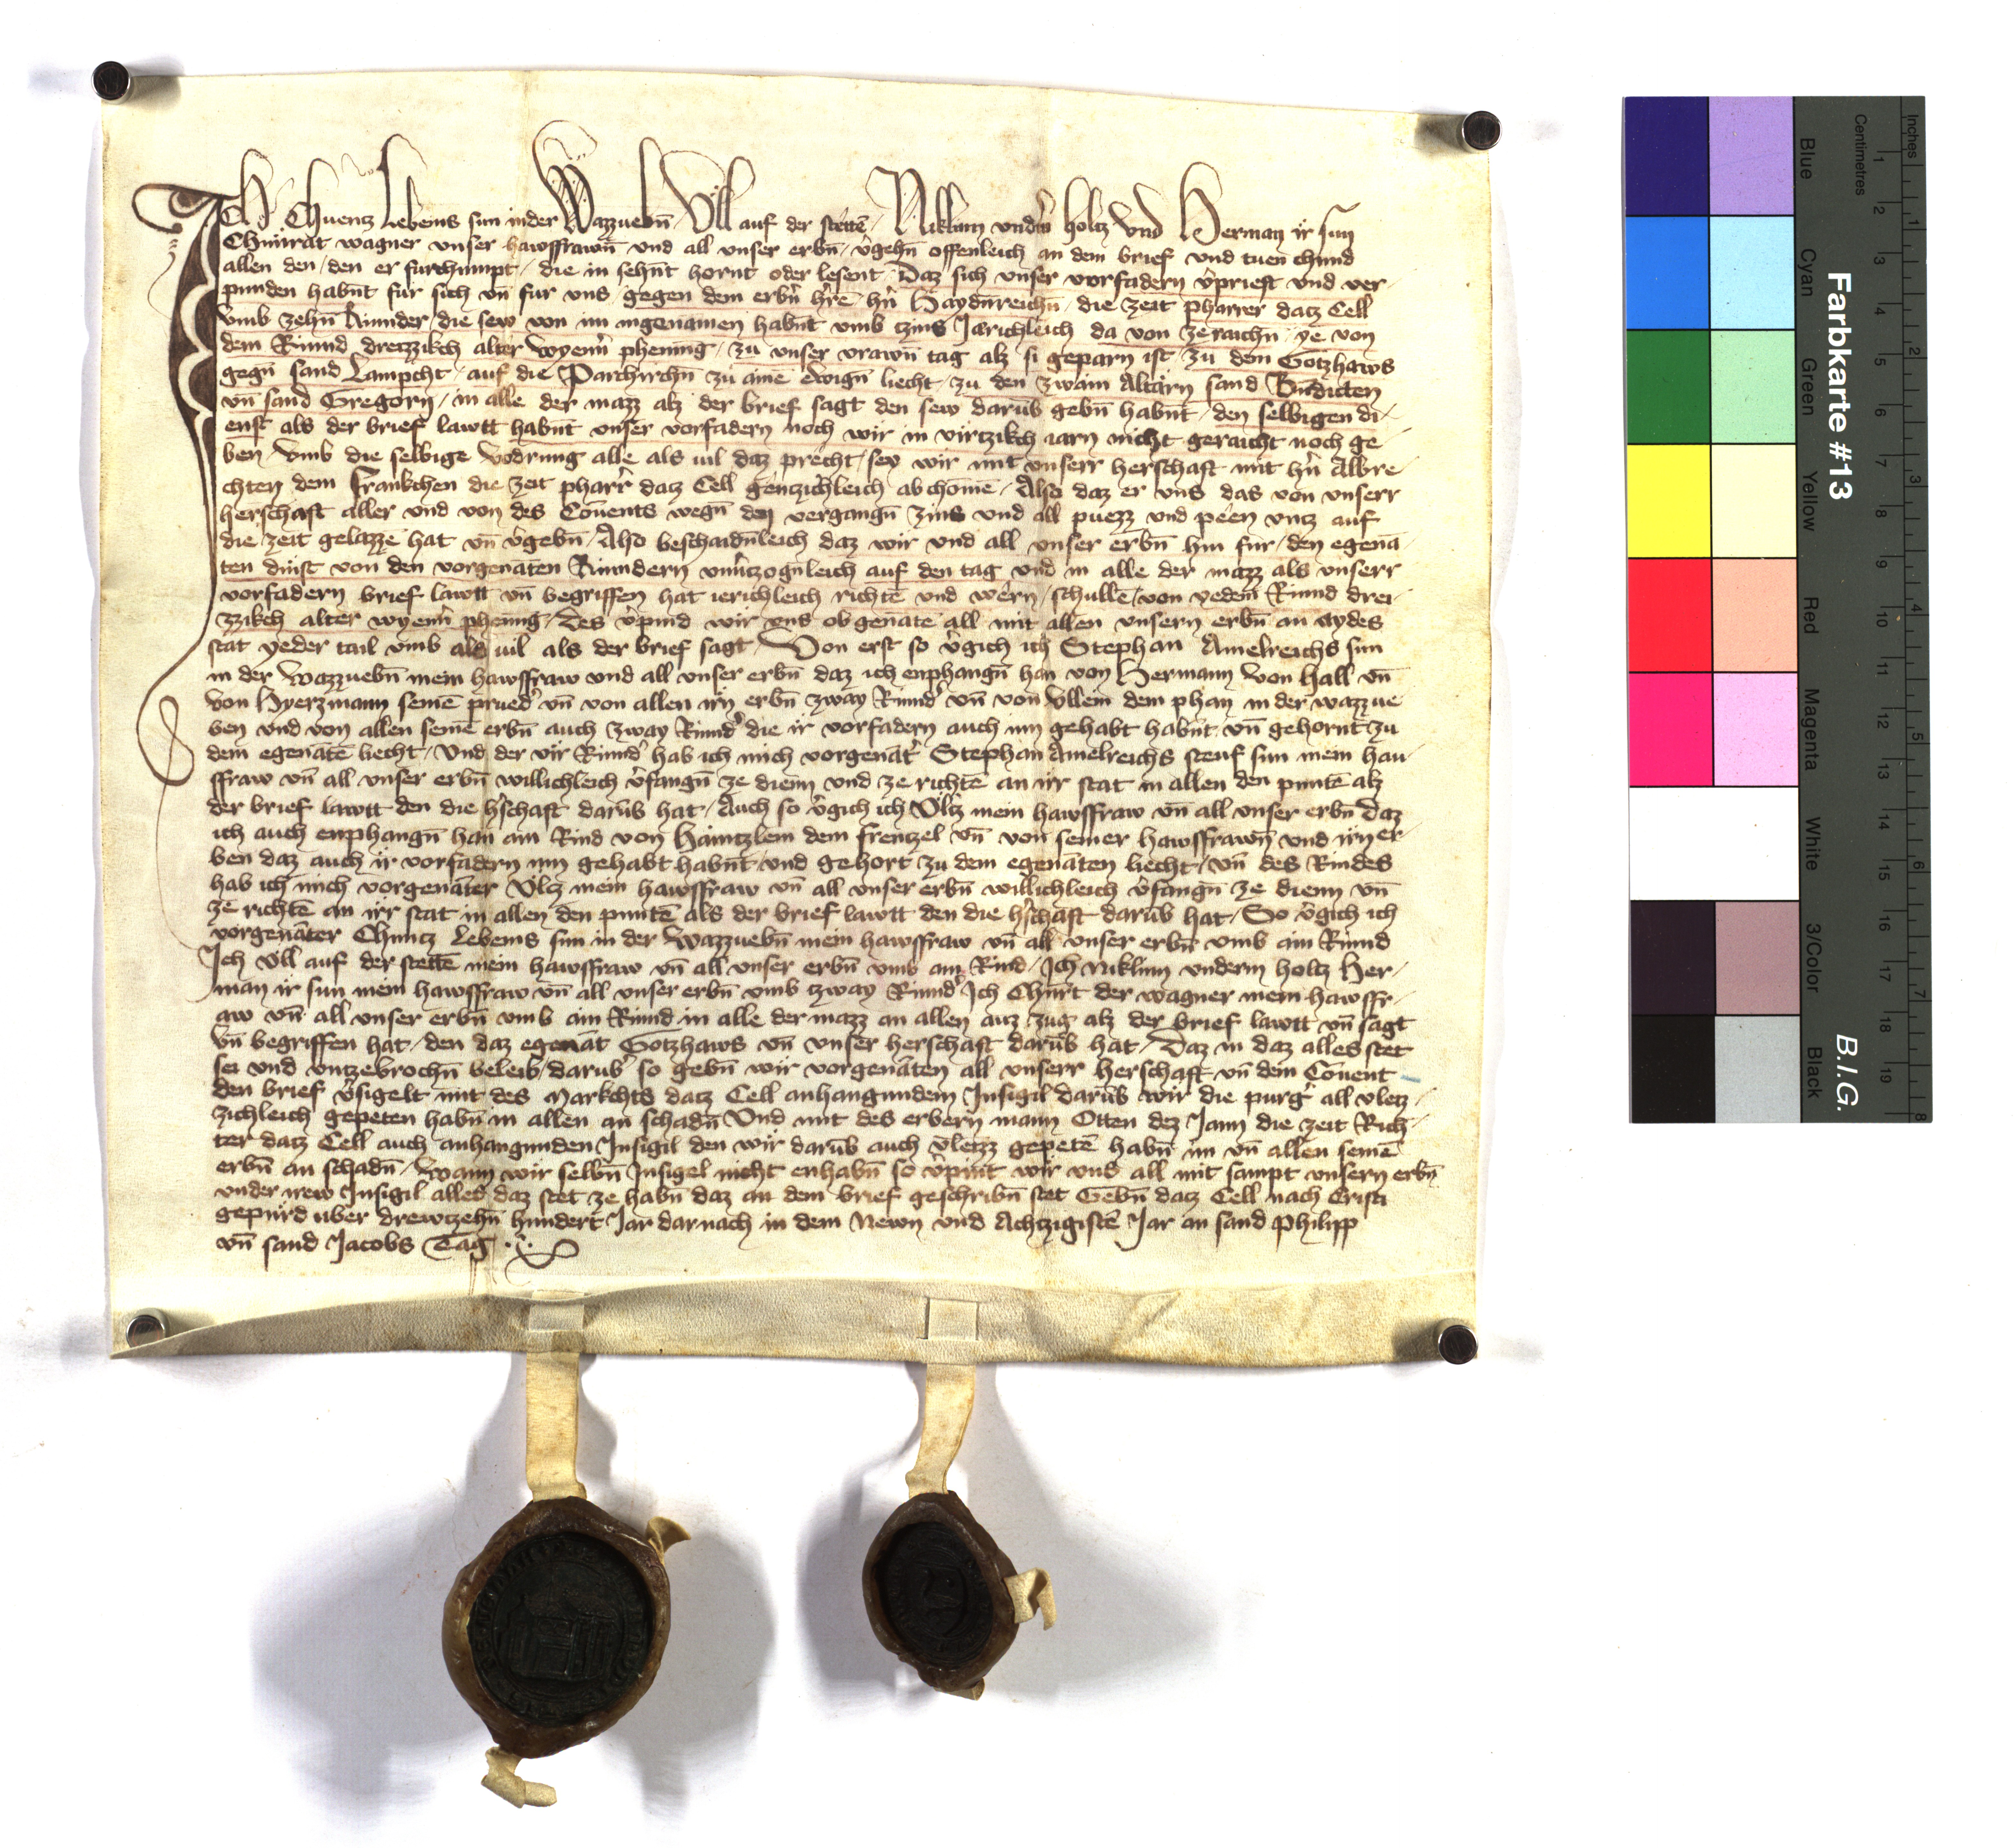 Ich Chuentz Lebeins sun in der Wazzuebn̄ / Vll auf der stettē / Niklinn vndˀm holtz vnd Herman ir sun
Chunrat wagner vnser hawsffrawn̄ vnd all vnser erbn̄ / vˀgehn̄ offenleich an dem brief vnd tuen chund
allen den / den er furchumpt / die in sehn̄t hornt oder lesent / Daz sich vnser vorfadern vˀpriest vnd ver-
punden habn̄t fur sich vn̄ fur vns / gegen dem erbn̄ hˀre hˀn Haydn̄reichn̄ / die zeit pharrer datz Cell
vmb zehn̄ Rinnder / die sew von im ingenamen habn̄t vmb tzins Jarichleich da von ze raichn̄ / ye von
dem Rinnd dreizzikch alter wyenn̄ phening / zu vnser vrawn̄ tag alz si geparn ist / zu dem Gotzhaws
gegn̄ sand Lampcht / auf die Parchirchn̄ zu aine ewign̄ liecht / zu den zwain Altarn sand Bn̄dicten
vn̄ sand Gregorn / in alle der mazz alz der brief sagt den sew darūb gebn̄ habn̄t / den selbigen di-
enst als der brief lawtt habn̄t vnser vorfadern noch wir in virtzikch iarn nicht geraicht noch ge-
ben / vmb die selbige vodrung alle als uil daz precht / sey wir mit vnserr herschaft mit hˀn Albre-
chten dem Frankchen die zeit pharrˀ datz Cell gentzichleich ab chomē / Also daz er vns das von vnserr
herschaft aller vnd von des Couents wegn̄ den vergangn̄ zins vnd all puezz vnd peen vntz auf
die zeit gelazze hat vn̄ vˀgebn̄ / Also beschaidn̄leich daz wir vnd all vnser erbn̄ hin fur / den egenā-
ten dinst von den vorgenāten Rinndern vnuˀtzogn̄leich auf den tag vnd in alle der mazz als vnserr
vorfadern brief lawtt vn̄ begriffen hat ierichleich richtē vnd wern / schulle / von yedem Rinnd drei-
zzikch alter wyenn̄ phenng / Des vˀpind wir vns ob genāte all mit allen vnsern erbn̄ an aydes
stat yeder tail vmb als uil als der brief sagt / Von erst so vˀgich ich Stephan Amelreichs sun
in der wazzuebn̄ mein hawsffraw vnd all vnser erbn̄ daz ich enphangn̄ han von Hermann von Hall vn̄
von Hyerzmann seinē pruedˀ vn̄ von allen irn erbn̄ zway Rinndˀ vn̄ von Vllein dem phan in der wazzue-
ben vnd von allen seinē erbn̄ auch zway Rinndˀ die ir vorfadern auch inn gehabt habn̄t vn̄ gehornt zu
dem egenātē liecht / Vnd der vir Rinndˀ hab ich mich vorgenātˀ Stephan Amelreichs steuf sun mein hau-
sffraw vn̄ all vnser erbn̄ willichleich vˀfangn̄ ze dienn vnd ze richtē an irr stat in allen den puntē alz
der brief lawtt den die hˀschaft darūb hat / Auch so vˀgich ich Vltz mein hawsffraw vn̄ all vnser erbn̄ daz
ich auch enphangn̄ han ain Rind von Haintzlein dem frentzel vn̄ von seiner hawsffrawn̄ vnd irn er-
ben daz auch ir vorfadern inn gehabt habn̄t vnd gehort zu dem egenāten liecht / vn̄ des Rindes
hab ich mich vorgenāter Vltz mein hawsffraw vn̄ all vnser erbn̄ willichleich vˀfangn̄ ze dienn vn̄
ze richtē an irr stat in allen den puntē als der brief lawtt den die hˀschaft darūb hat / So vˀgich ich
vorgenāter Chuntz Lebeins sun in der wazzuebn̄ mein hawsffraw vn̄ all vnser erbn̄ vmb ain Rinnd
Ich Vll auf der stettē mein hawsffraw vn̄ all vnser erbn̄ vmb ain Rind / Ich niklinn vnderm holtz Her-
man ir sun mein hawsffraw vn̄ all vnser erbn̄ vmb tzway Rinndˀ Ich Chunrt der wagner mein hawsffr-
aw vn̄ all vnser erbn̄ vmb ain Rinnd in alle der mazz an allen auz zug alz der brief lawtt vn̄ sagt
vn̄ begriffen hat / den daz egenāt Gotzhaws vn̄ vnser herschaft darūb hat / Daz in daz alles stet
sei vnd vntzebrochn̄ beleib / darūb so gebn̄ wir vorgenāten all vnserr herschaft vn̄ dem Couent
den brief vˀsigelt mit des Markchts datz Cell anhangundem Insigil darūb wir die purgˀ all vletz-
zichleich gepeten habn̄ in allen an schadn̄ Vnd mit des erbern mann Otten dez Jann die zeit Rich-
ter datz Cell auch anhangunden Insigil den wir darūb auch vletzz gepetē habn̄ im vn̄ allen seinē
erbn̄ an schadn̄ / Wann wir selbn̄ Insigel nicht enhabn̄ so vˀpint wir vns all mit sampt vnsern erbn̄
vnder irew Insigil alles daz stet ze habn̄ daz an dem brief geschribn̄ stet Gebn̄ datz Cell nach Cristi
gepurd uber drewtzehn̄ hundert Jar darnach in dem Newn vnd Achtzigistē Jar an sand Philipp
vn̄ sand Jacobs Tag
Farbkarte #13
B.I.G.
Inches
Centimetres
1 2 3 4 5 6 7 8
1 2 3 4 5 6 7 8 9 10 11 12 13 14 15 16 17 18 19
Blue
Cyan
Green
Yellow
Red
Magenta
White
3/Color
Black